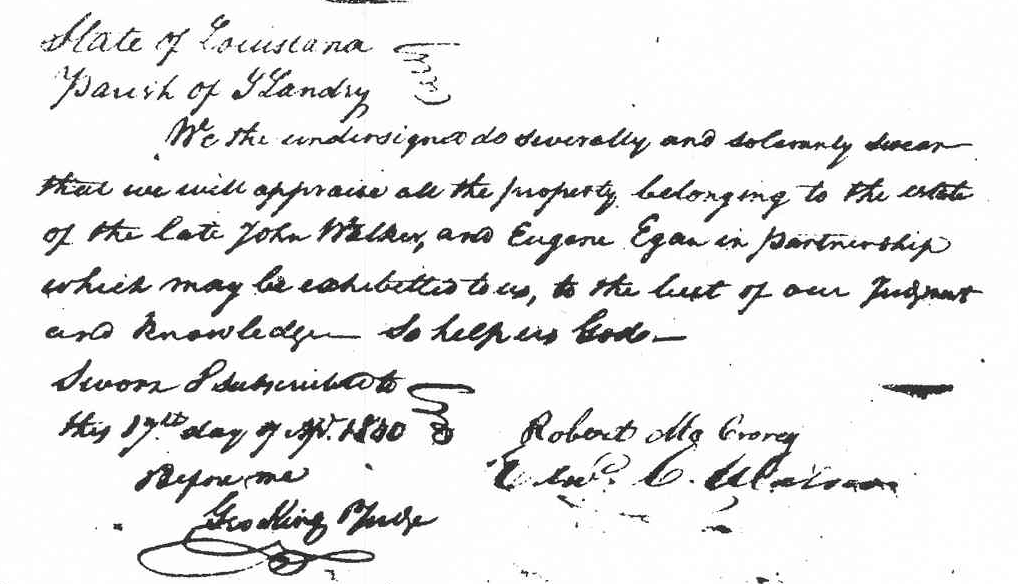 State of Louisiana
Parish of St Landry
We the undersigned do severally and solemnly swear
that we will appraise all the property belonging to the estate
of the late John Walker, and Eugene Egan in partnership
which may be exhibitted to us, to the best of our Judgment
and Knowledge— So help us God—
Sworn & subscribed to
this 17th day of Apl. 1830
Before me
Robert Mc Crorey
C.
Geo King P Judge